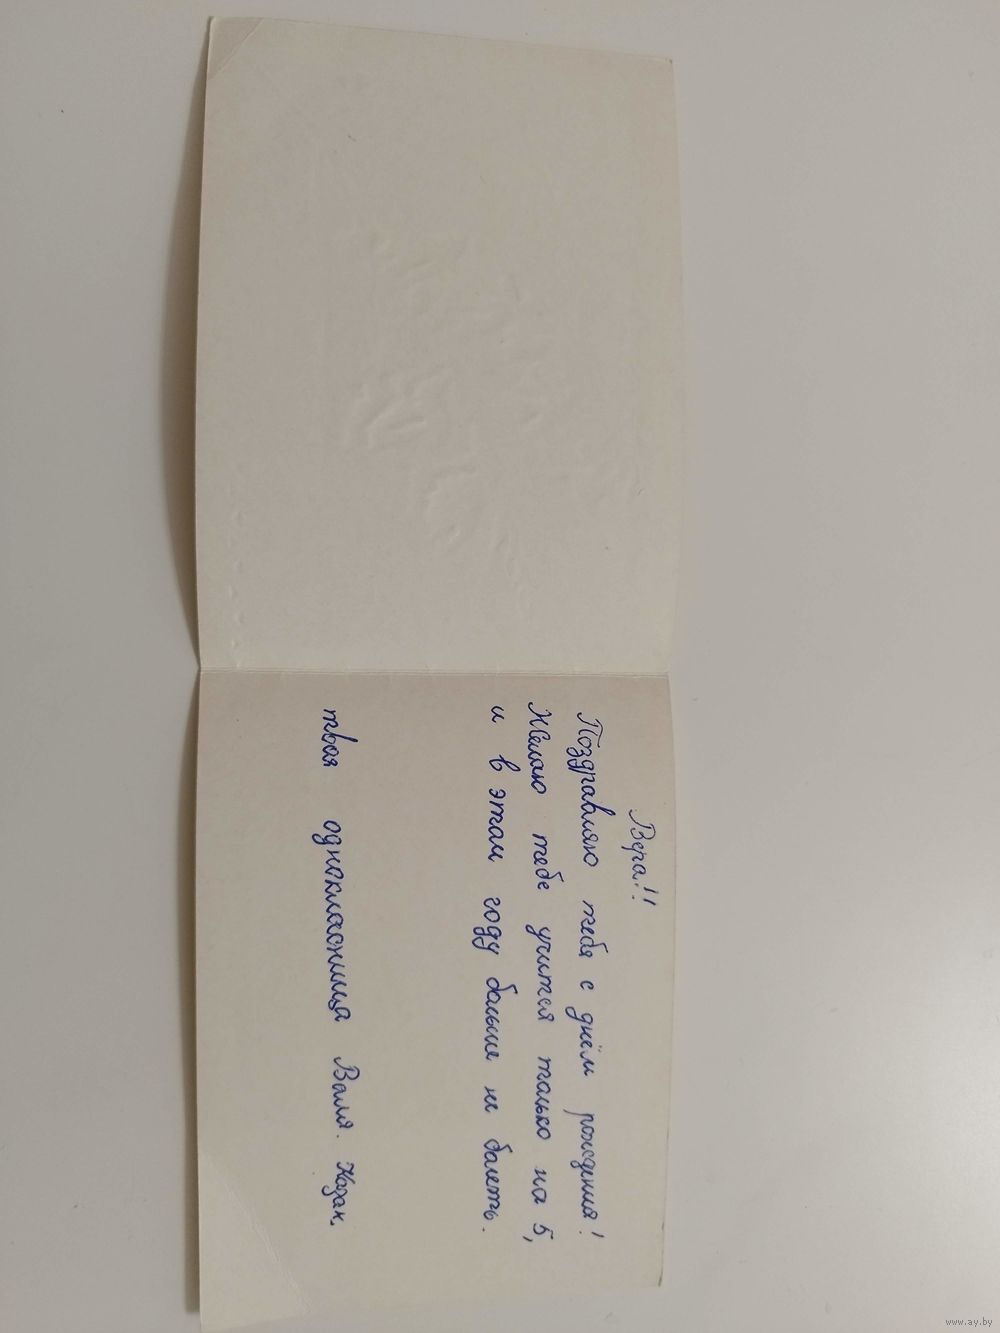 Вера!!
Поздравляю тебя с днём рождения!
Желаю тебе учится только на 5,
и в этом году больше не болеть.
твоя однокласница Валя. Казак.
www.ay.by